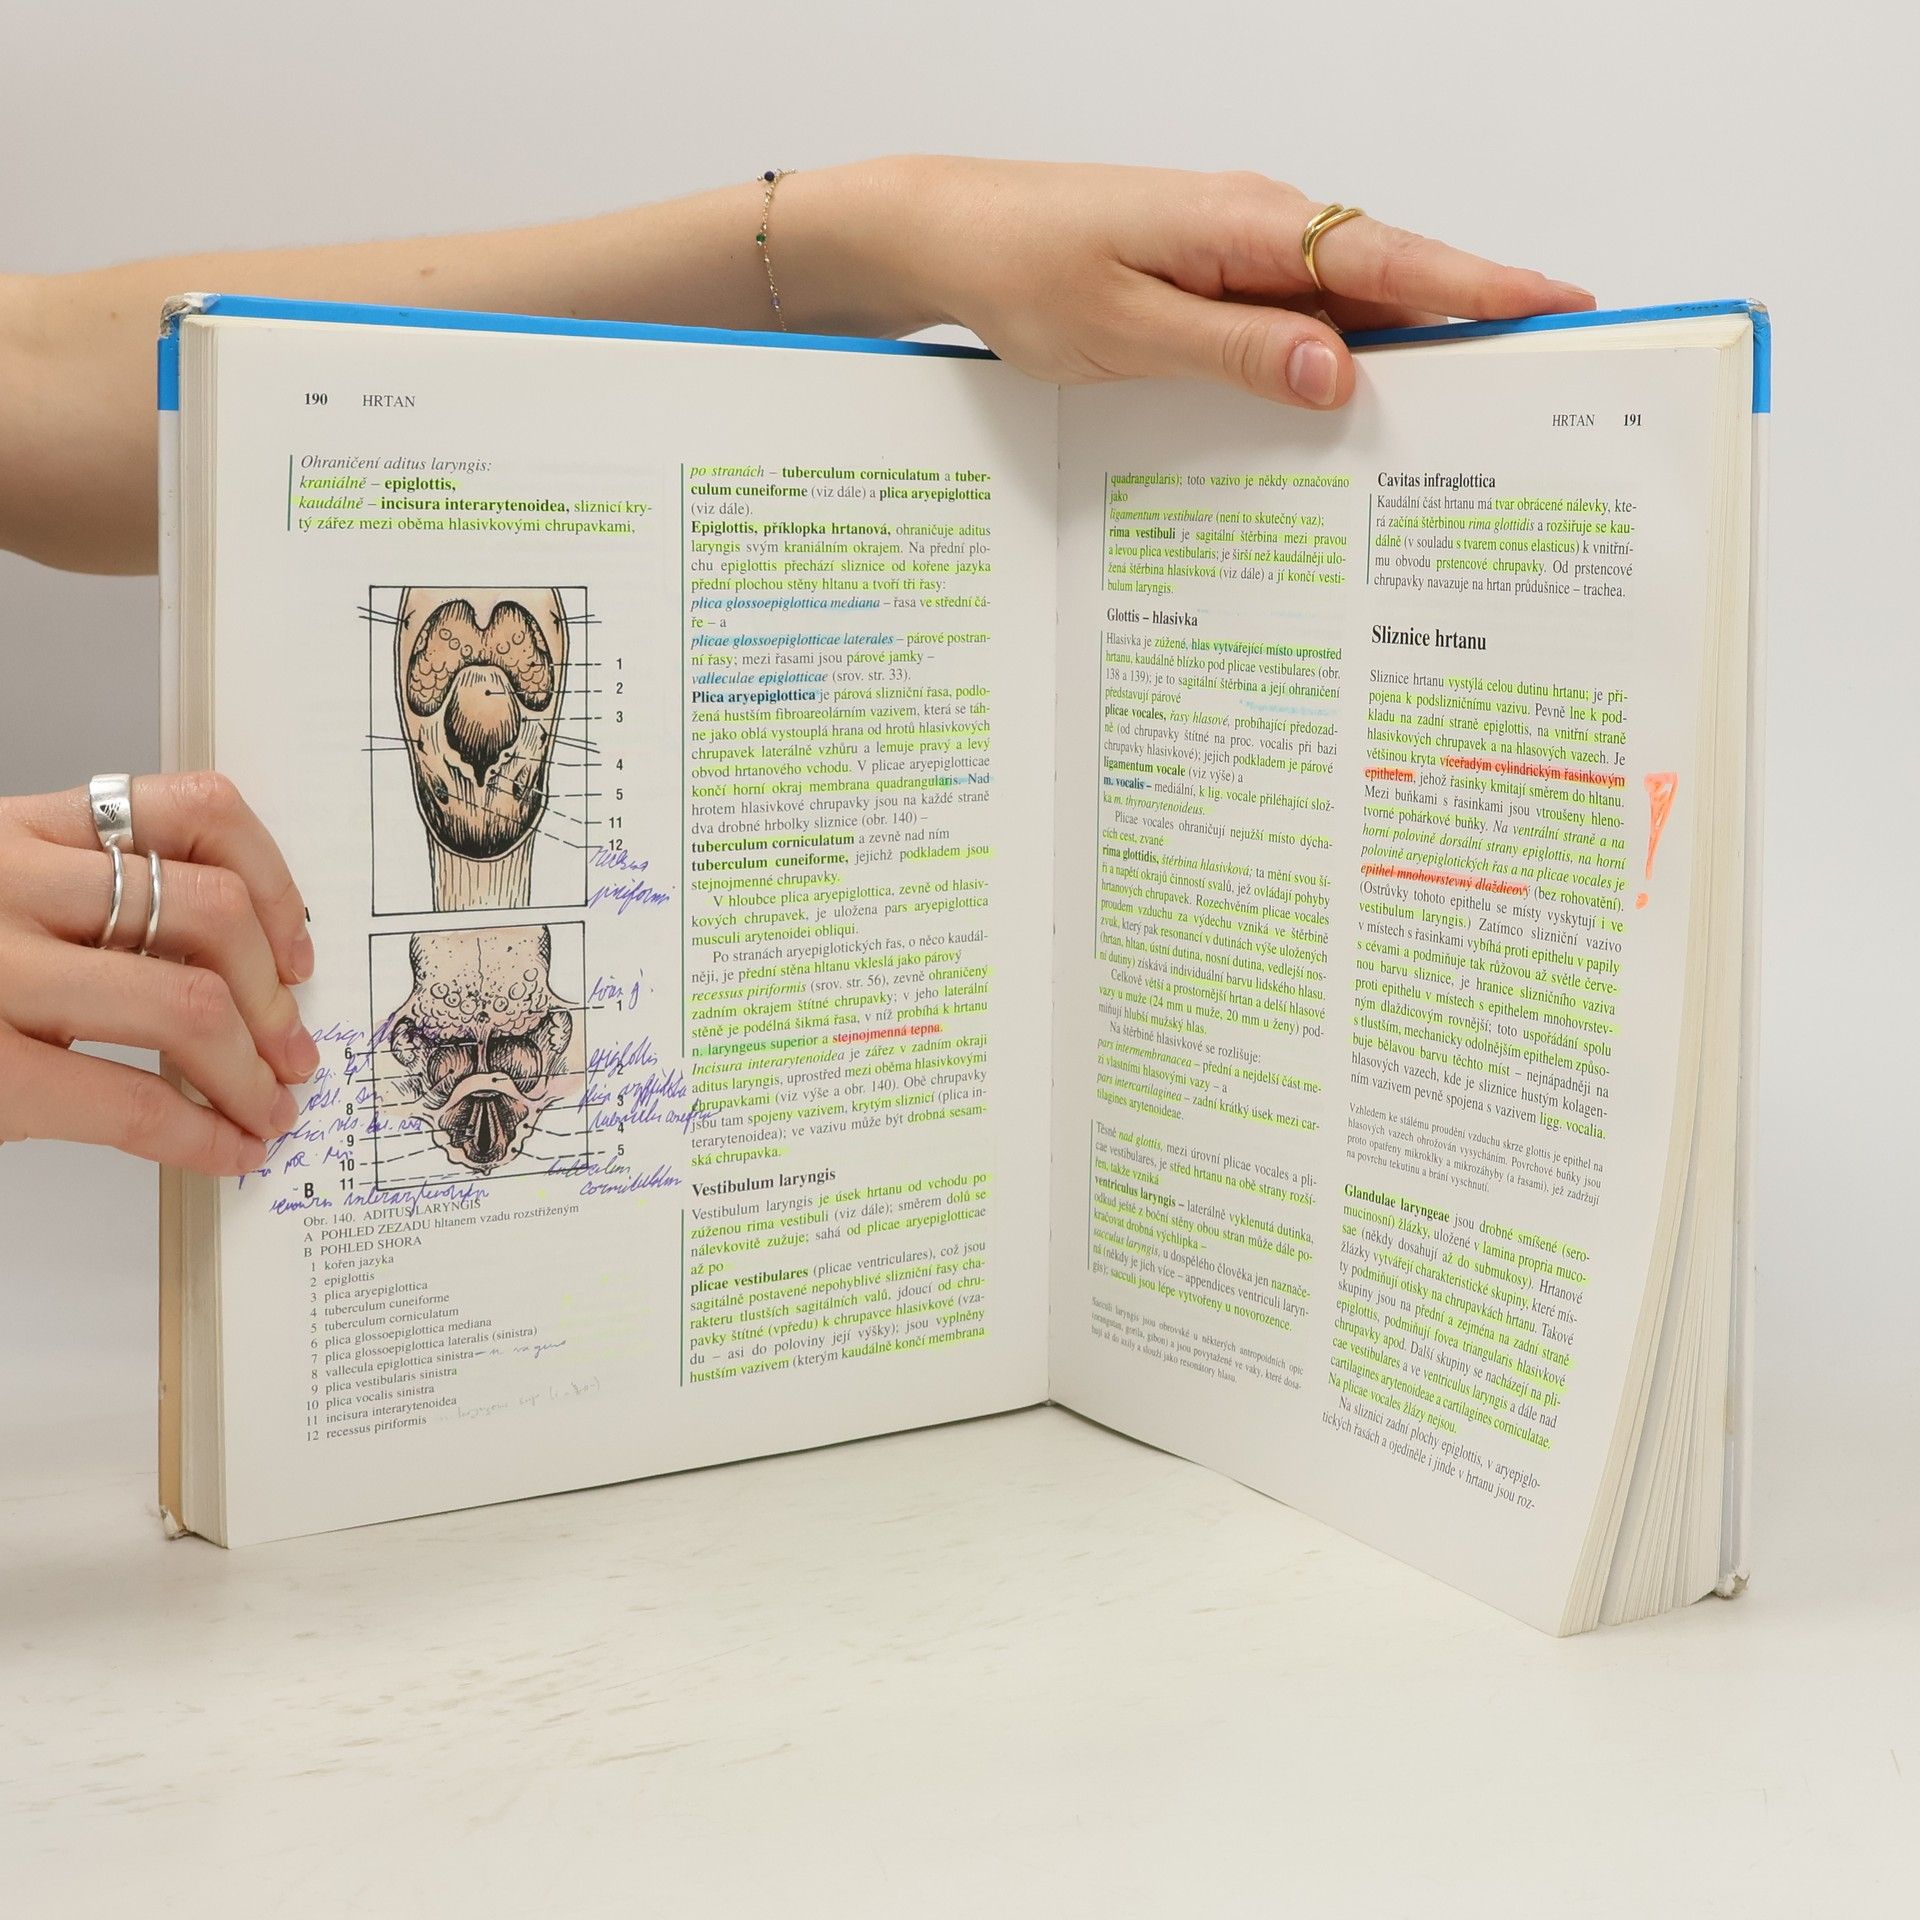 190 HRTAN
Ohraničení aditus laryngis:
kraniálně – epiglottis,
kaudálně – incisura interarytenoidea, sliznicí kry-
tý zářez mezi oběma hlasivkovými chrupavkami,
1
2
3
4
5
11
12
recessus
piriformis
1
epiglottis
2
3
4
5
6
7
8
9
10
11
tuberculum
B
Obr. 140. ADITUS LARYNGIS
A POHLED ZEZADU hltanem vzadu rozstřiženým
B POHLED SHORA
1 kořen jazyka
2 epiglottis
3 plica aryepiglottica
4 tuberculum cuneiforme
5 tuberculum corniculatum
6 plica glossoepiglottica mediana
7 plica glossoepiglottica lateralis (sinistra)
8 vallecula epiglottica sinistra
9 plica vestibularis sinistra
10 plica vocalis sinistra
11 incisura interarytenoidea
12 recessus piriformis
po stranách – tuberculum corniculatum a tuber-
culum cuneiforme (viz dále) a plica aryepiglottica
(viz dále).
Epiglottis, příklopka hrtanová, ohraničuje aditus
laryngis svým kraniálním okrajem. Na přední plo-
chu epiglottis přechází sliznice od kořene jazyka
přední plochou stěny hltanu a tvoří tři řasy:
plica glossoepiglottica mediana – řasa ve střední čá-
ře – a
plicae glossoepiglotticae laterales – párové postran-
ní řasy; mezi řasami jsou párové jamky –
valleculae epiglotticae (srov. str. 33).
Plica aryepiglottica je párová slizniční řasa, podlo-
žená hustším fibroareolárním vazivem, která se táh-
ne jako oblá vystouplá hrana od hrotů hlasivkových
chrupavek laterálně vzhůru a lemuje pravý a levý
obvod hrtanového vchodu. V plicae aryepiglotticae
končí horní okraj membrana quadrangularis. Nad
hrotem hlasivkové chrupavky jsou na každé straně
dva drobné hrbolky sliznice (obr. 140) –
tuberculum corniculatum a zevně nad ním
tuberculum cuneiforme, jejichž podkladem jsou
stejnojmenné chrupavky.
V hloubce plica aryepiglottica, zevně od hlasiv-
kových chrupavek, je uložena pars aryepiglottica
musculi arytenoidei obliqui.
Po stranách aryepiglotických řas, o něco kaudál-
něji, je přední stěna hltanu vkleslá jako párový
recessus piriformis (srov. str. 56), zevně ohraničený
zadním okrajem štítné chrupavky; v jeho laterální
stěně je podélná šikmá řasa, v níž probíhá k hrtanu
n. laryngeus superior a stejnojmenná tepna.
Incisura interarytenoidea je zářez v zadním okraji
aditus laryngis, uprostřed mezi oběma hlasivkovými
chrupavkami (viz výše a obr. 140). Obě chrupavky
jsou tam spojeny vazivem, krytým sliznicí (plica in-
terarytenoidea); ve vazivu může být drobná sesam-
ská chrupavka.
Vestibulum laryngis
Vestibulum laryngis je úsek hrtanu od vchodu po
zúženou rima vestibuli (viz dále); směrem dolů se
nálevkovitě zužuje; sahá od plicae aryepiglotticae
až po
plicae vestibulares (plicae ventriculares), což jsou
sagitálně postavené nepohyblivé slizniční řasy cha-
rakteru tlustších sagitálních valů, jdoucí od chru-
pavky štítné (vpředu) k chrupavce hlasivkové (vza-
du – asi do poloviny její výšky); jsou vyplněny
hustším vazivem (kterým kaudálně končí membrana
HRTAN 191
quadrangularis); toto vazivo je někdy označováno
jako
ligamentum vestibulare (není to skutečný vaz);
rima vestibuli je sagitální štěrbina mezi pravou
a levou plica vestibularis; je širší než kaudálněji ulo-
žená štěrbina hlasivková (viz dále) a jí končí vesti-
bulum laryngis.
Glottis – hlasivka
Hlasivka je zúžené, hlas vytvářející místo uprostřed
hrtanu, kaudálně blízko pod plicae vestibulares (obr.
138 a 139); je to sagitální štěrbina a její ohraničení
představují párové
plicae vocales, řasy hlasové, probíhající předozad-
ně (od chrupavky štítné na proc. vocalis při bazi
chrupavky hlasivkové); jejich podkladem je párové
ligamentum vocale (viz výše) a
m. vocalis – mediální, k lig. vocale přiléhající slož-
ka m. thyroarytenoideus.
Plicae vocales ohraničují nejužší místo dýcha-
cích cest, zvané
rima glottidis, štěrbina hlasivková; ta mění svou ší-
ři a napětí okrajů činností svalů, jež ovládají pohyby
hrtanových chrupavek. Rozechvěním plicae vocales
proudem vzduchu za výdechu vzniká ve štěrbině
zvuk, který pak resonancí v dutinách výše uložených
(hrtan, hltan, ústní dutina, nosní dutina, vedlejší nos-
ní dutiny) získává individuální barvu lidského hlasu.
Celkově větší a prostornější hrtan a delší hlasové
vazy u muže (24 mm u muže, 20 mm u ženy) pod-
miňují hlubší mužský hlas.
Na štěrbině hlasivkové se rozlišuje:
pars intermembranacea – přední a nejdelší část me-
zi vlastními hlasovými vazy – a
pars intercartilaginea – zadní krátký úsek mezi car-
tilagines arytenoideae.
Těsně nad glottis, mezi úrovní plicae vocales a pli-
cae vestibulares, je střed hrtanu na obě strany rozší-
řen, takže vzniká
ventriculus laryngis – laterálně vyklenutá dutinka,
odkud ještě z boční stěny obou stran může dále po-
kračovat drobná výchlipka –
sacculus laryngis, u dospělého člověka jen naznače-
ná (někdy je jich více – appendices ventriculi laryn-
gis); sacculi jsou lépe vytvořeny u novorozence.
Sacculi laryngis jsou obrovské u některých antropoidních opic
(orangutan, gorila, gibon) a jsou povytažené ve vaky, které dosa-
hují až do axily a slouží jako resonátory hlasu.
Cavitas infraglottica
Kaudální část hrtanu má tvar obrácené nálevky, kte-
rá začíná štěrbinou rima glottidis a rozšiřuje se kau-
dálně (v souladu s tvarem conus elasticus) k vnitřní-
mu obvodu prstencové chrupavky. Od prstencové
chrupavky navazuje na hrtan průdušnice – trachea.
Sliznice hrtanu
Sliznice hrtanu vystýlá celou dutinu hrtanu; je při-
pojena k podslizničnímu vazivu. Pevně lne k pod-
kladu na zadní straně epiglottis, na vnitřní straně
hlasivkových chrupavek a na hlasových vazech. Je
většinou kryta víceřadým cylindrickým řasinkovým
epithelem, jehož řasinky kmitají směrem do hltanu.
Mezi buňkami s řasinkami jsou vtroušeny hleno-
tvorné pohárkové buňky. Na ventrální straně a na
horní polovině dorsální strany epiglottis, na horní
polovině aryepiglotických řas a na plicae vocales je
epithel mnohovrstevný dlaždicový (bez rohovatění).
(Ostrůvky tohoto epithelu se místy vyskytují i ve
vestibulum laryngis.) Zatímco slizniční vazivo
v místech s řasinkami vybíhá proti epithelu v papily
s cévami a podmiňuje tak růžovou až světle červe-
nou barvu sliznice, je hranice slizničního vaziva
proti epithelu v místech s epithelem mnohovrstev-
ným dlaždicovým rovnější; toto uspořádání spolu
s tlustším, mechanicky odolnějším epithelem způso-
buje bělavou barvu těchto míst – nejnápadněji na
hlasových vazech, kde je sliznice hustým kolagen-
ním vazivem pevně spojena s vazivem ligg. vocalia.
Vzhledem ke stálému proudění vzduchu skrze glottis je epithel na
hlasových vazech ohrožován vysycháním. Povrchové buňky jsou
proto opatřeny mikroklky a mikrozáhyby (a řasami), jež zadržují
na povrchu tekutinu a brání vyschnutí.
Glandulae laryngeae jsou drobné smíšené (sero-
mucinosní) žlázky, uložené v lamina propria muco-
sae (někdy dosahují až do submukosy). Hrtanové
žlázky vytvářejí charakteristické skupiny, které mís-
ty podmiňují otisky na chrupavkách hrtanu. Takové
skupiny jsou na přední a zejména na zadní straně
epiglottis, podmiňují fovea triangularis hlasivkové
chrupavky apod. Další skupiny se nacházejí na pli-
cae vestibulares a ve ventriculus laryngis a dále nad
cartilagines arytenoideae a cartilagines corniculatae.
Na plicae vocales žlázy nejsou.
Na sliznici zadní plochy epiglottis, v aryepiglo-
tických řasách a ojediněle i jinde v hrtanu jsou roz-